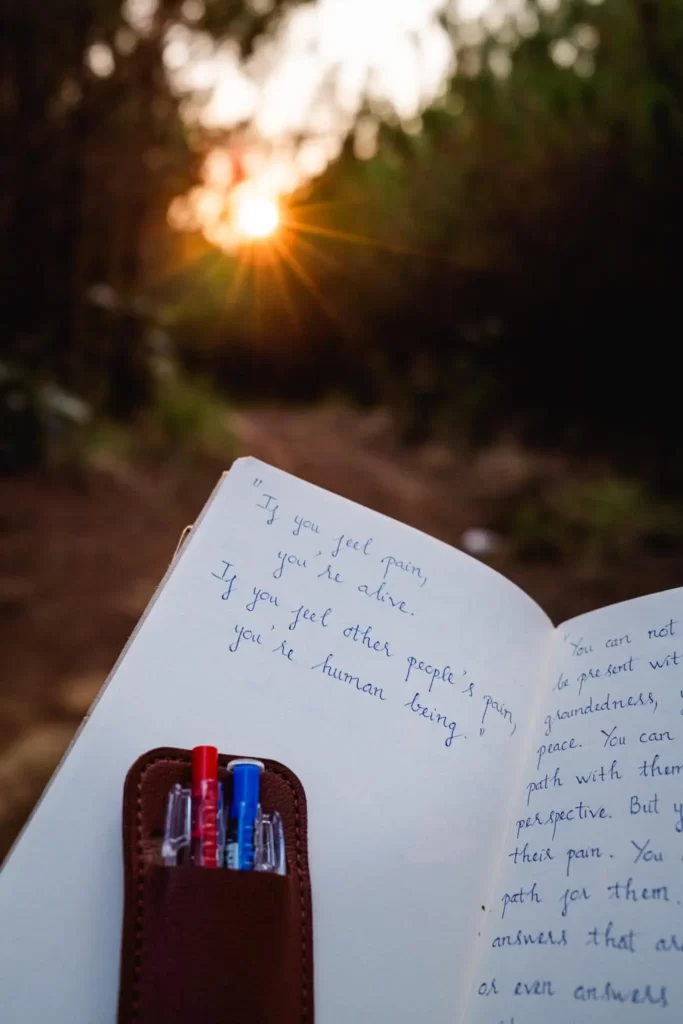 "If you feel pain,
you're alive.
If you feel other people's pain,
you're human being."
"You can not
be present wit
groundedness,
peace. You can
path with them
perspective. But y
their pain. You
path for them.
answers that are
or even answers